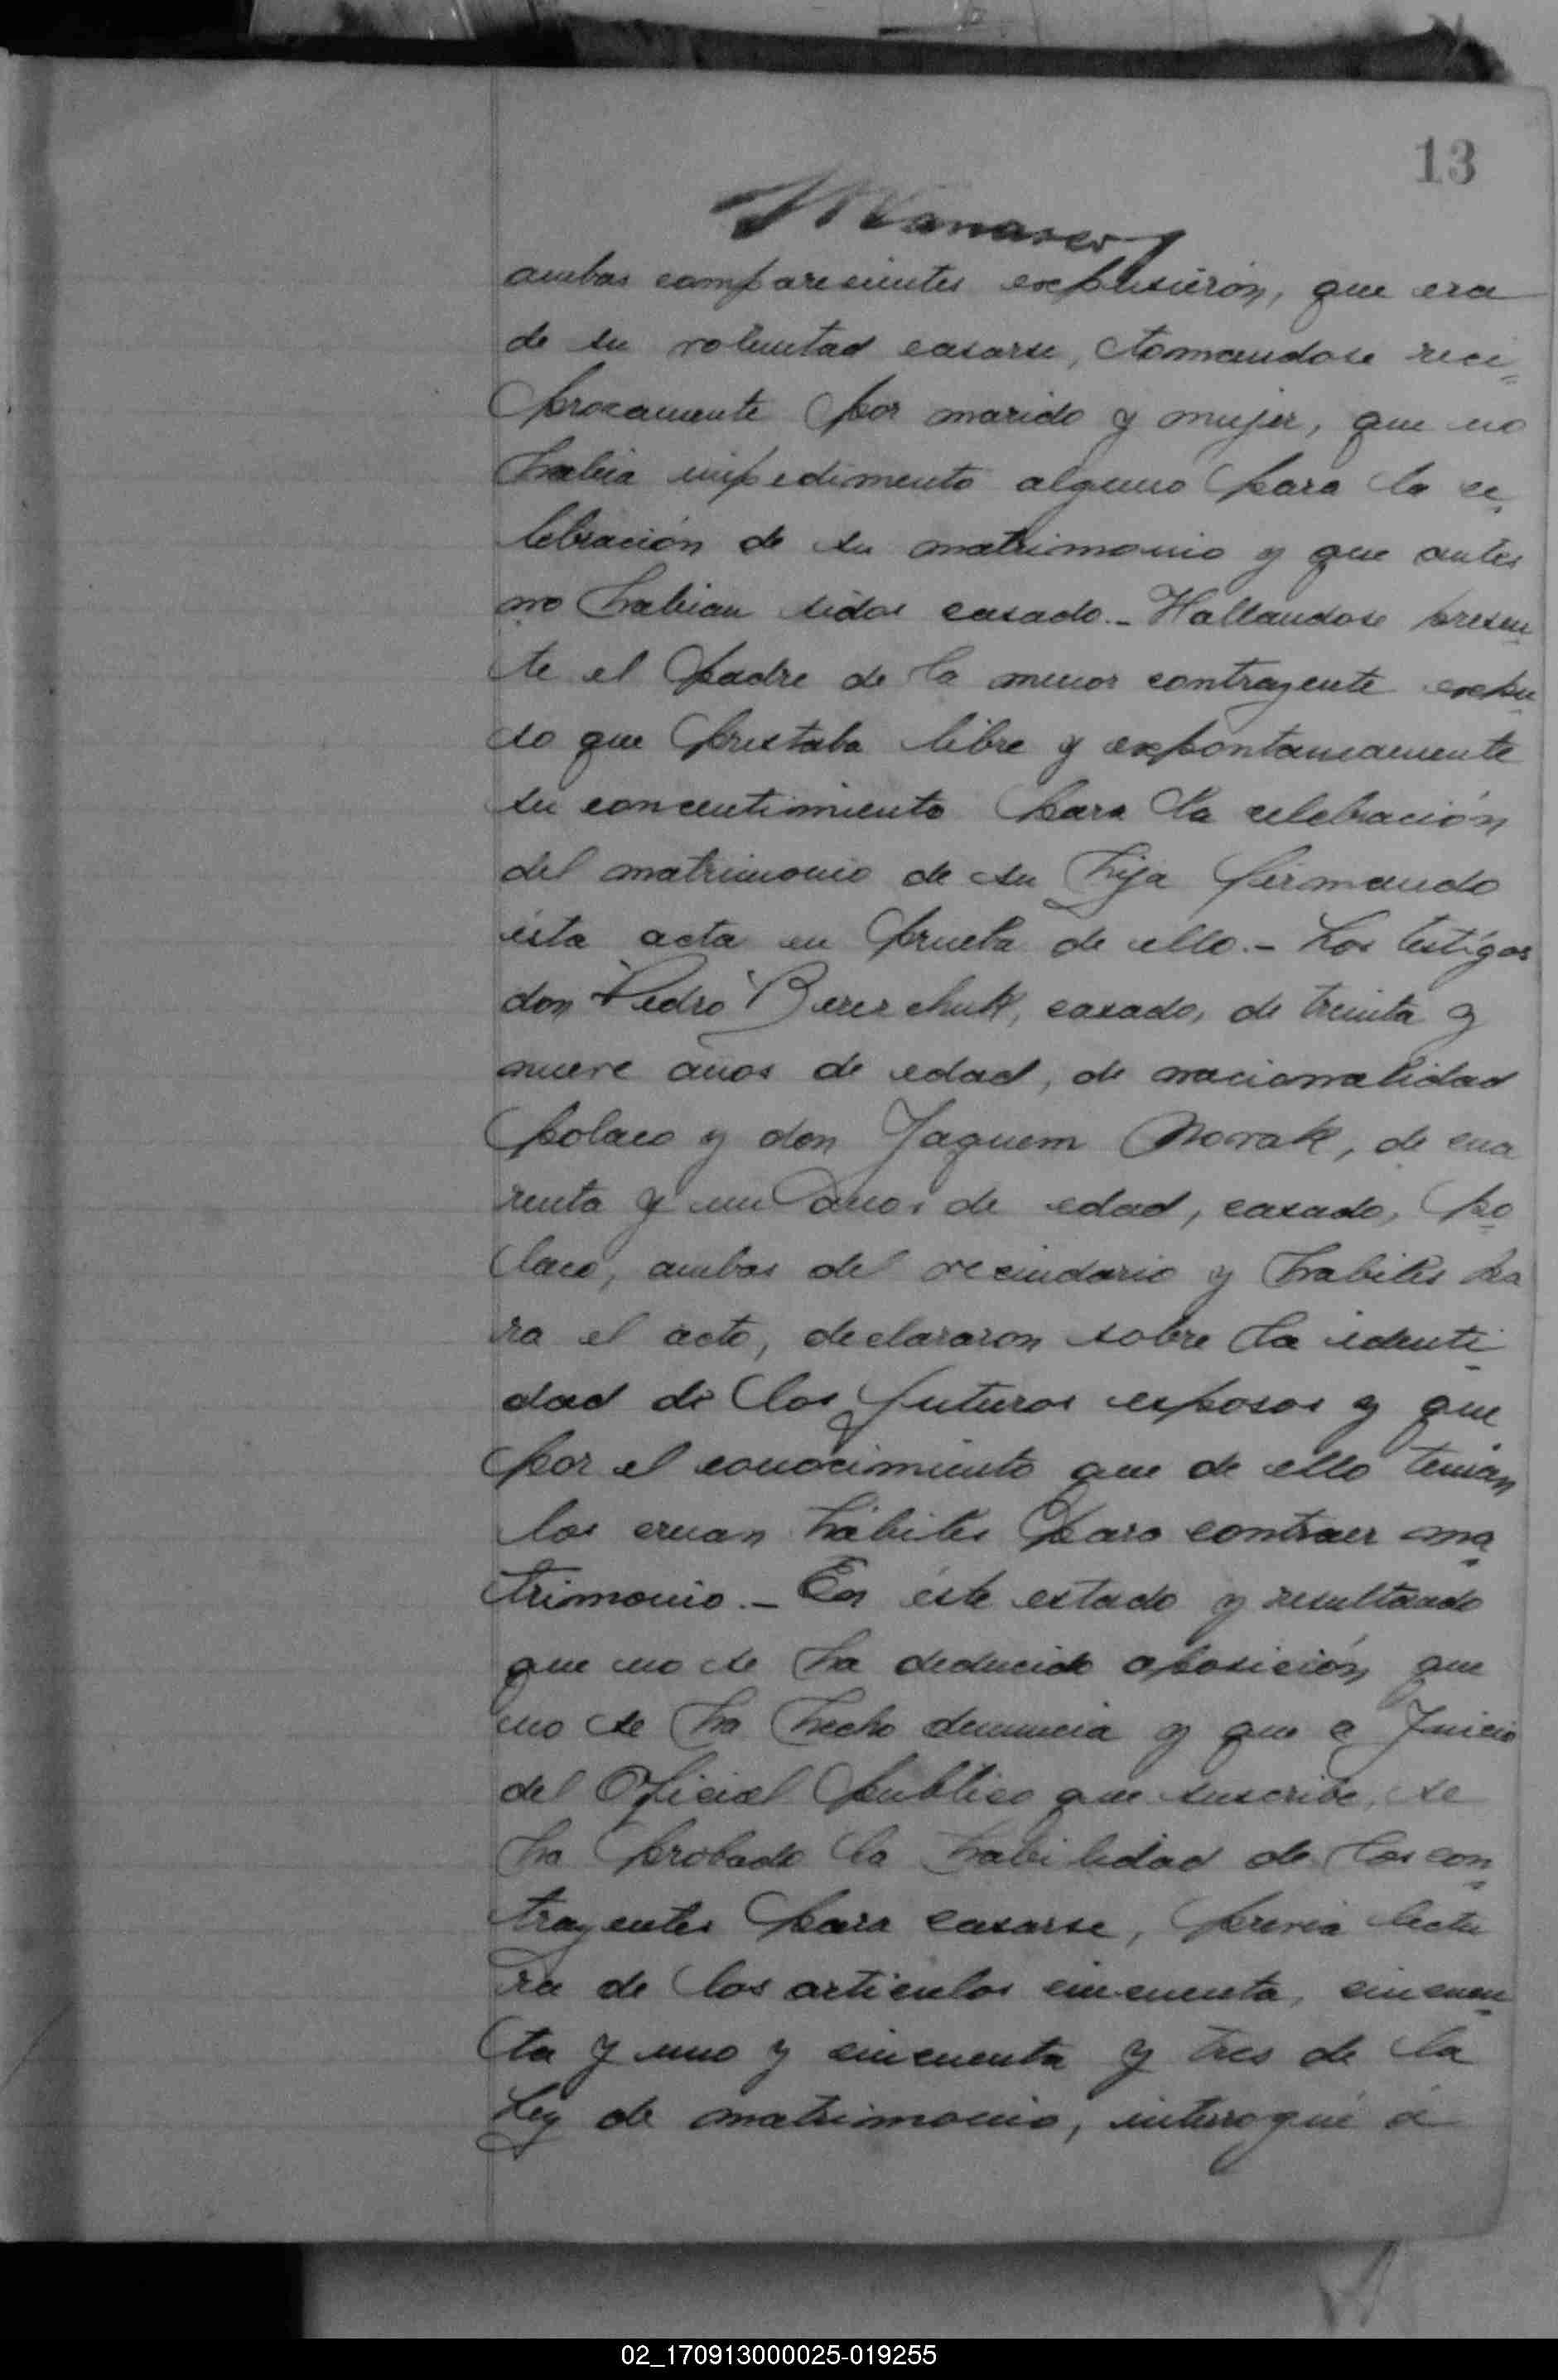 13
ambos comparesientes expusierón, que era
de su voluntad casarse, tomandose reci=
procamente por marido y mujer, que no
habia impedimento alguno para la ce=
lebración de su matrimonio y que antes
no habian sidos casado.- Hallandose presen=
te el padre de la menor contrayente expu=
so que prestaba libre y expontaneamente
su concentimiento para la celebración
del matrimonio de su hija firmando
ésta acta en prueba de ello.- Los testigos
don Pedro Berezchuk, casado, de treinta y
nueve años de edad, de nacionalidad
polaco y don Jaquem Novak, de cua
renta y un años de edad, casado, po=
laco, ambos del vecindario y habiles pa
ra el acto, declararon sobre la identi=
dad de los futuros esposos y que
por el conocimiento que de ello tenían
los creian hábiles para contraer ma=
trimonio.- En éste estado y resultando
que no se ha deducido oposición, que
no se ha hecho denuncia y que a Juicio
del Oficial publico que suscribe, se
ha probado la habilidad de los con=
trayentes para casarse, previa lectu
ra de los articulos cincuenta, cincuen=
ta y uno y cincuenta y tres de la
Ley de matrimonio, interrogué á
02_170913000025-019255